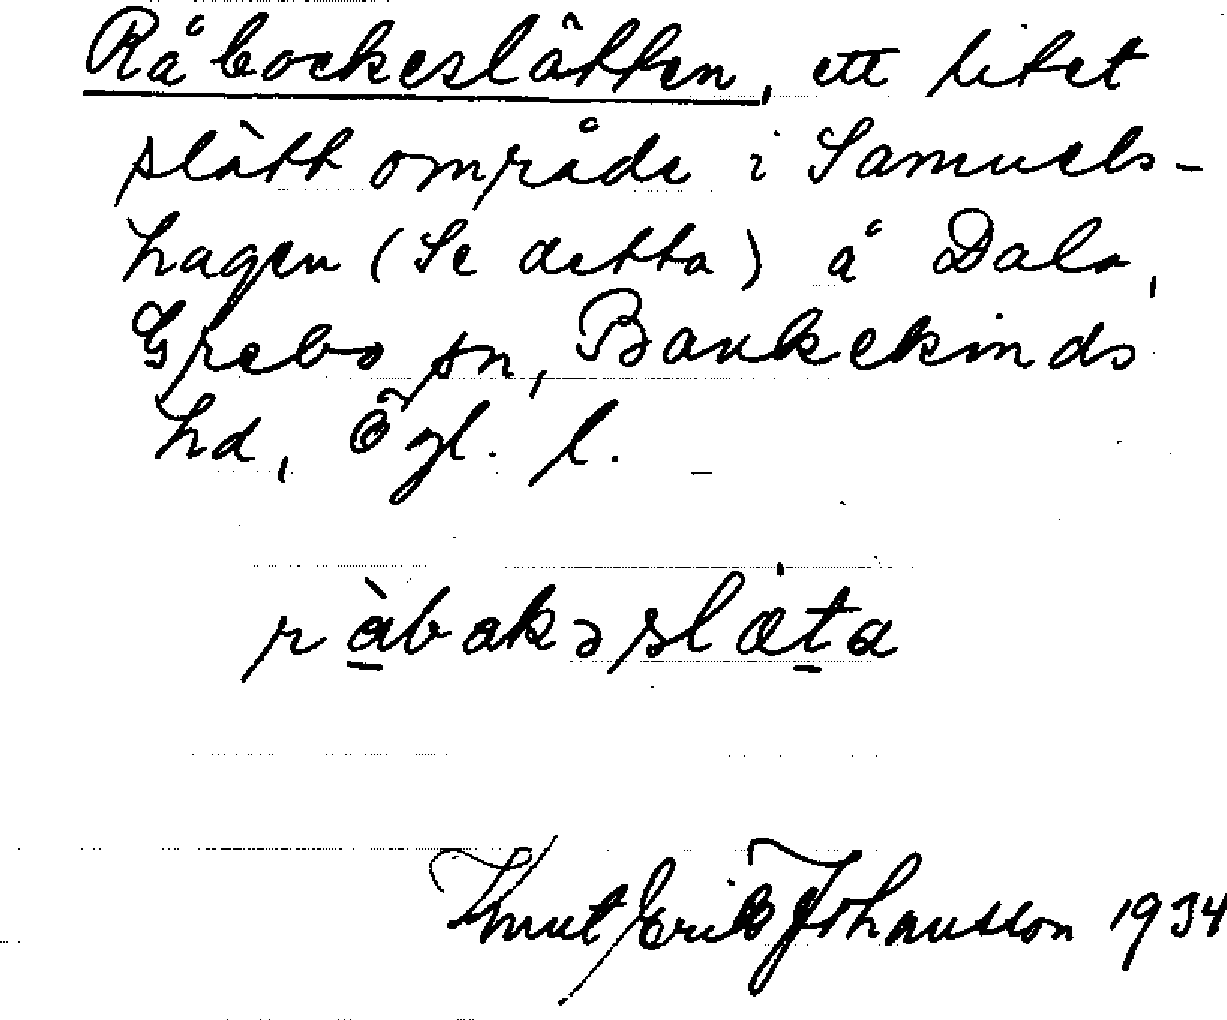 Råbockeslätten, ett litet
slätt område i Samuels-
hagen (Se detta) å Dala,
Grebo sn, Bankekinds
hd, Ögl. l.
ràbakəslæta
Knut Erik Johansson 1934